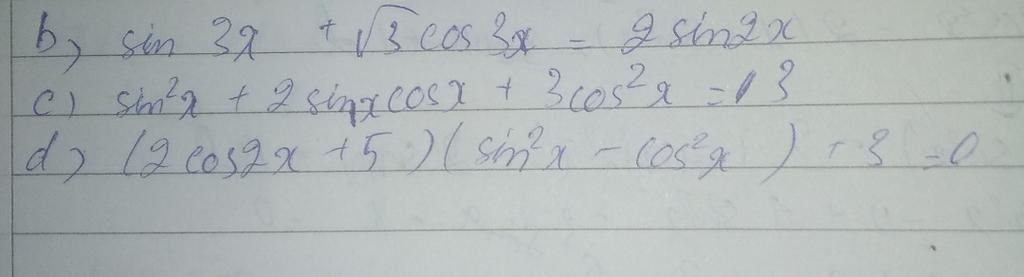 b) sin 3x + √3 cos 3x = 2 sin2x
c) sin²x + 2 sinx cosx + 3cos²x = 3
d) (2 cos2x + 5)(sin²x - cos²x) + 3 = 0